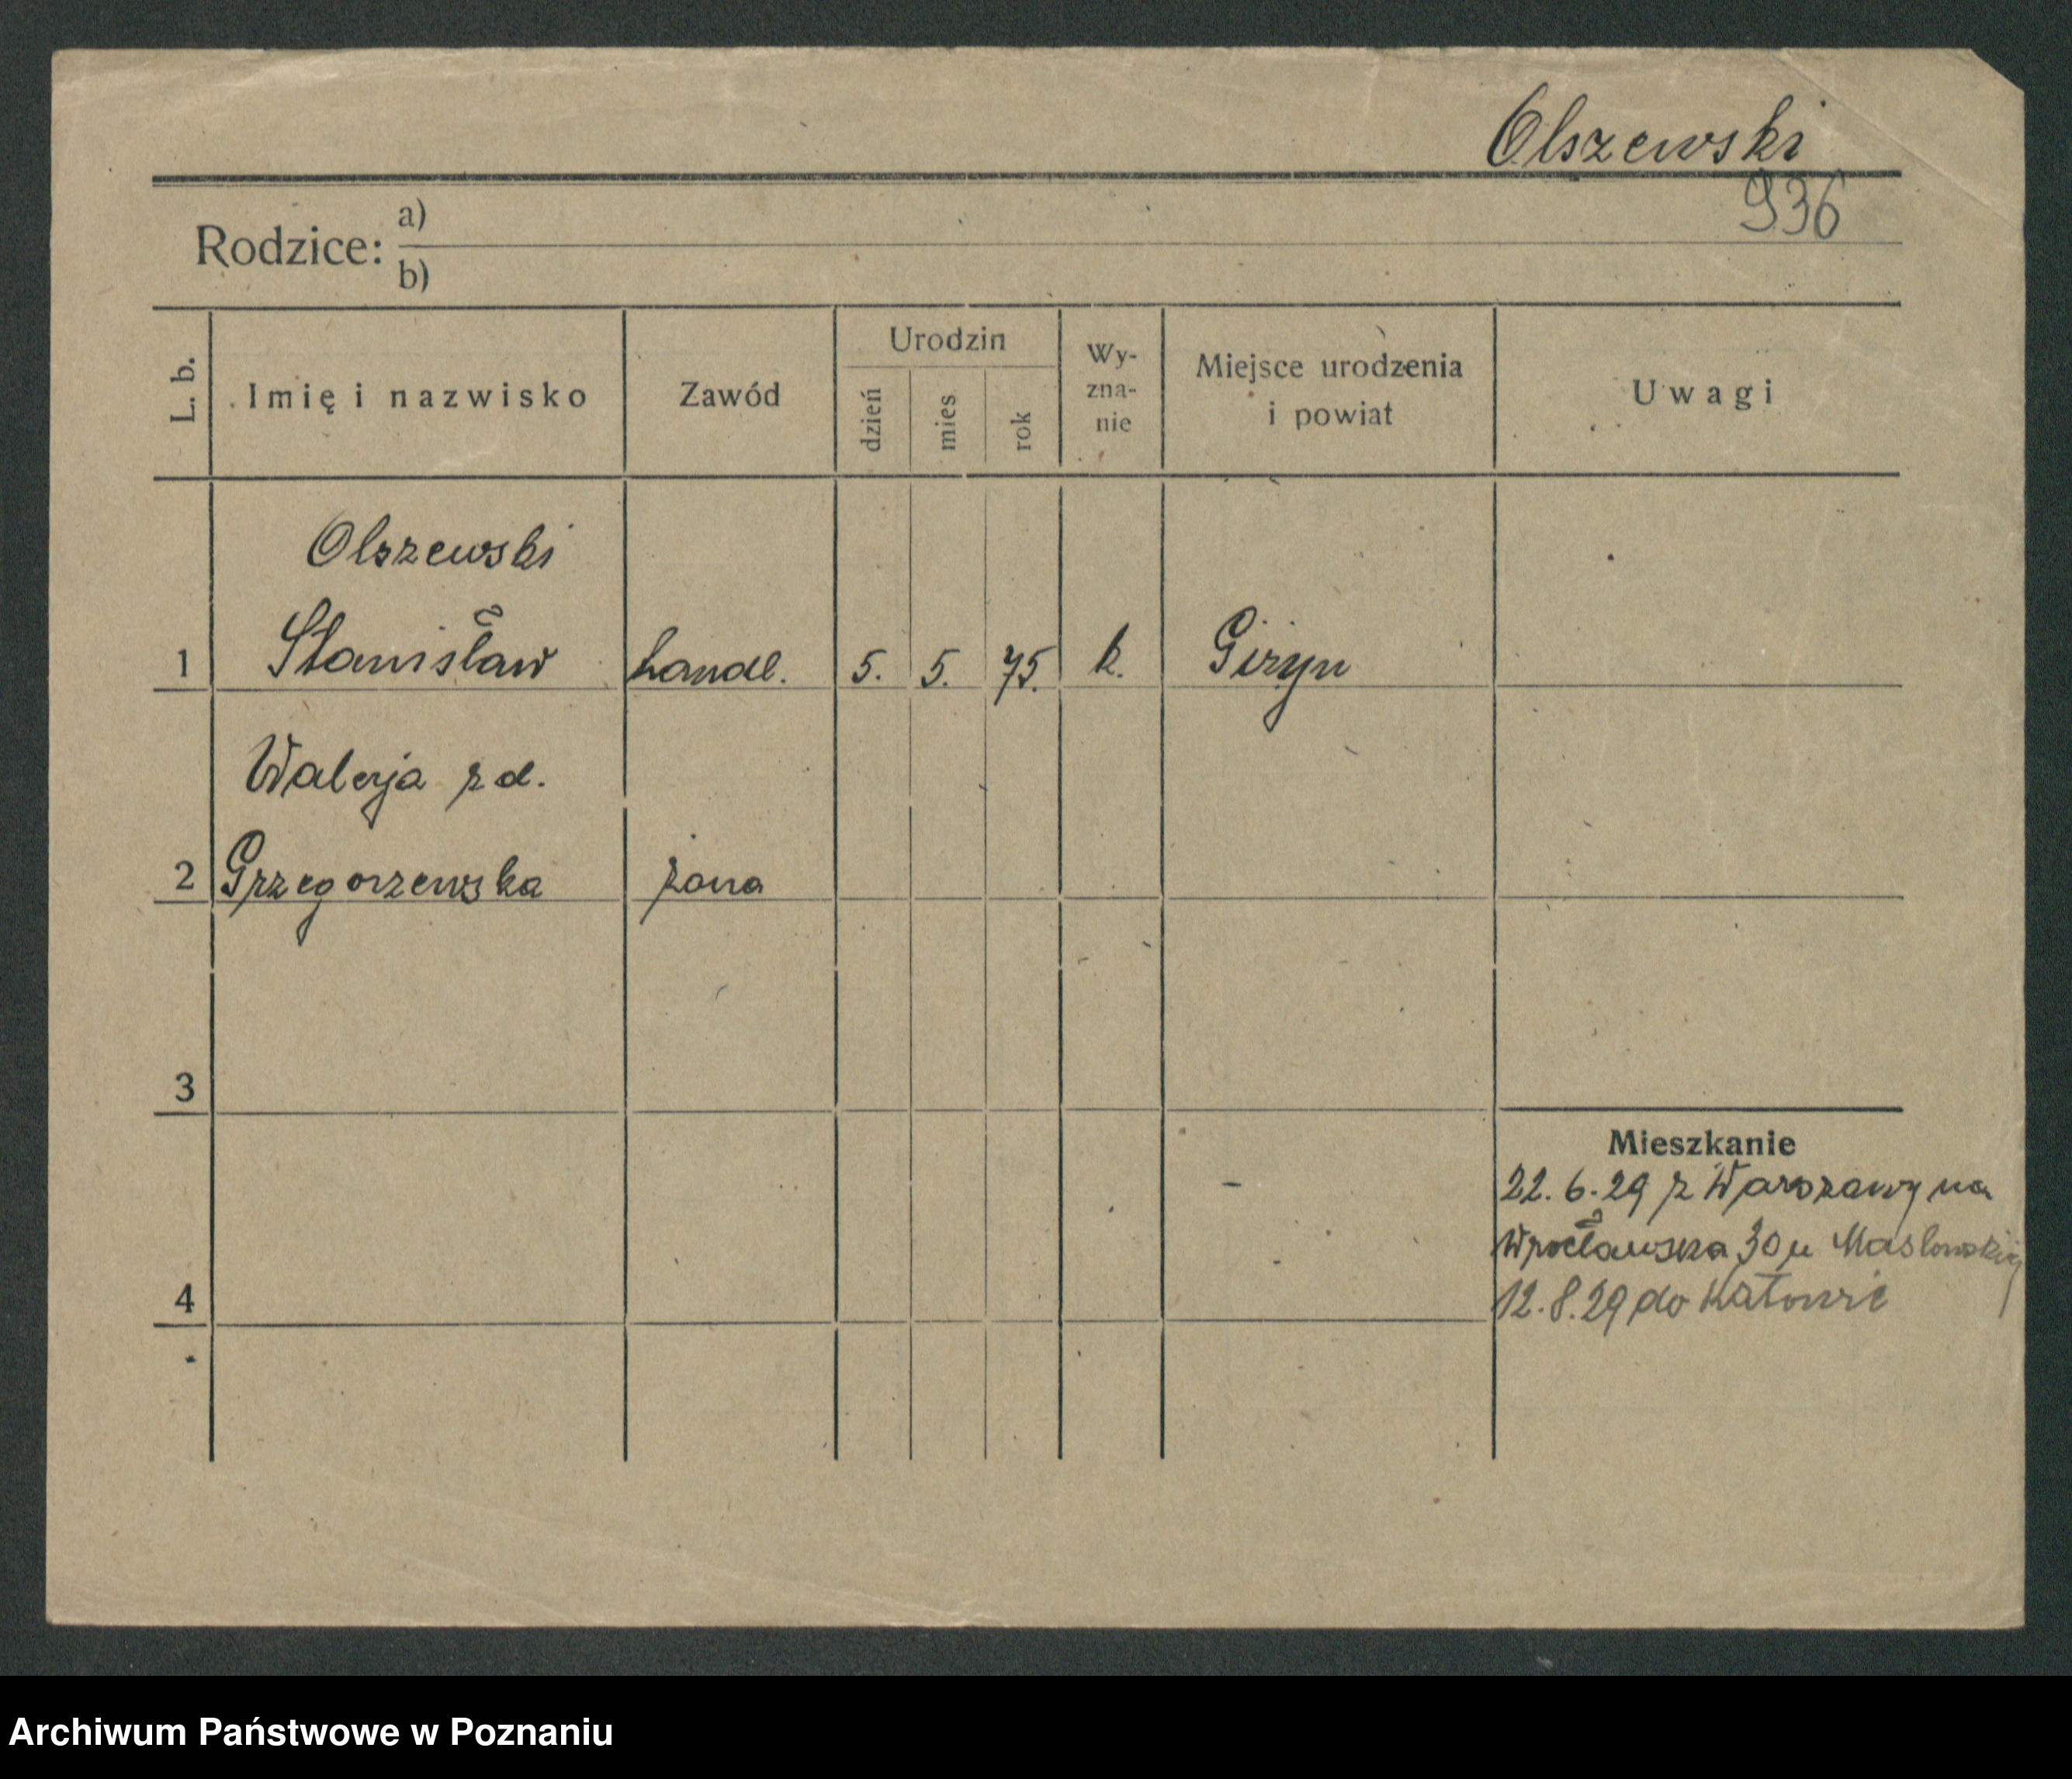 Olszewski
936
Rodzice: a)
b)
L. b. Imię i nazwisko Zawód Urodzin dzień mies rok Wy-zna-nie Miejsce urodzenia i powiat Uwagi
Olszewski
1 Stanisław handl. 5. 5. 75. k. Giżyn
Walerja z d.
2 Grzegorzewska żona
3
Mieszkanie
22. 6. 29 z Warszawy na
Wrocławska 30 u
4 12. 8. 29 do Katowic
Archiwum Państwowe w Poznaniu